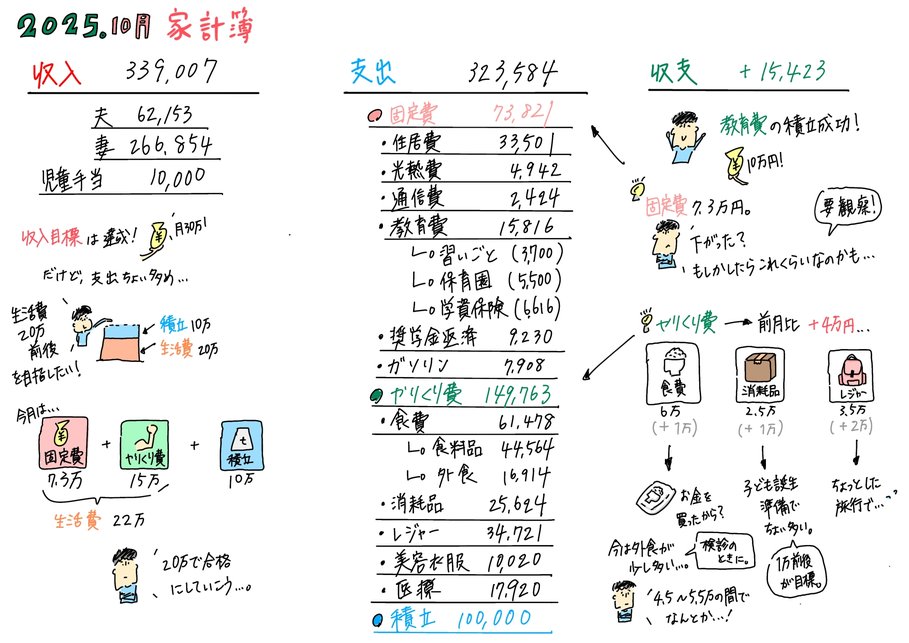 2025.10月 家計簿
収入 339,007
夫 62,153
妻 266,854
児童手当 10,000
収入目標は達成!
¥
月30万!
だけど、支出ちょい多め…
生活費
20万
前後
を目指したい!
積立 10万
生活費 20万
今月は…
¥
固定費
7.3万
+
やりくり費
15万
+
t
積立
10万
生活費 22万
20万で合格
にしていこう…。
支出 323,584
固定費 73,821
・住居費 33,501
・光熱費 4,942
・通信費 2,424
・教育費 15,816
習いごと (3,700)
保育園 (5,500)
学資保険 (6616)
・奨学金返済 9,230
・ガソリン 7,908
やりくり費 149,763
・食費 61,478
食料品 44,564
外食 16,914
・消耗品 25,624
・レジャー 34,721
・美容衣服 10,020
・医療 17,920
積立 100,000
収支 +15,423
教育費の積立成功!
¥
10万円!
固定費 7.3万円。
要観察!
下がった?
もしかしたらこれくらいなのかも…
やりくり費 → 前月比 +4万円…
食費
6万
(+1万)
消耗品
2.5万
(+1万)
レジャー
3.5万
(+2万)
お金を
買ったから?
今は外食が
少し多い…。
検診の
ときに。
4.5〜5.5万の間で
なんとか…!
子ども誕生
準備で
ちょい多い。
1万前後
が目標。
ちょっとした
旅行で…。